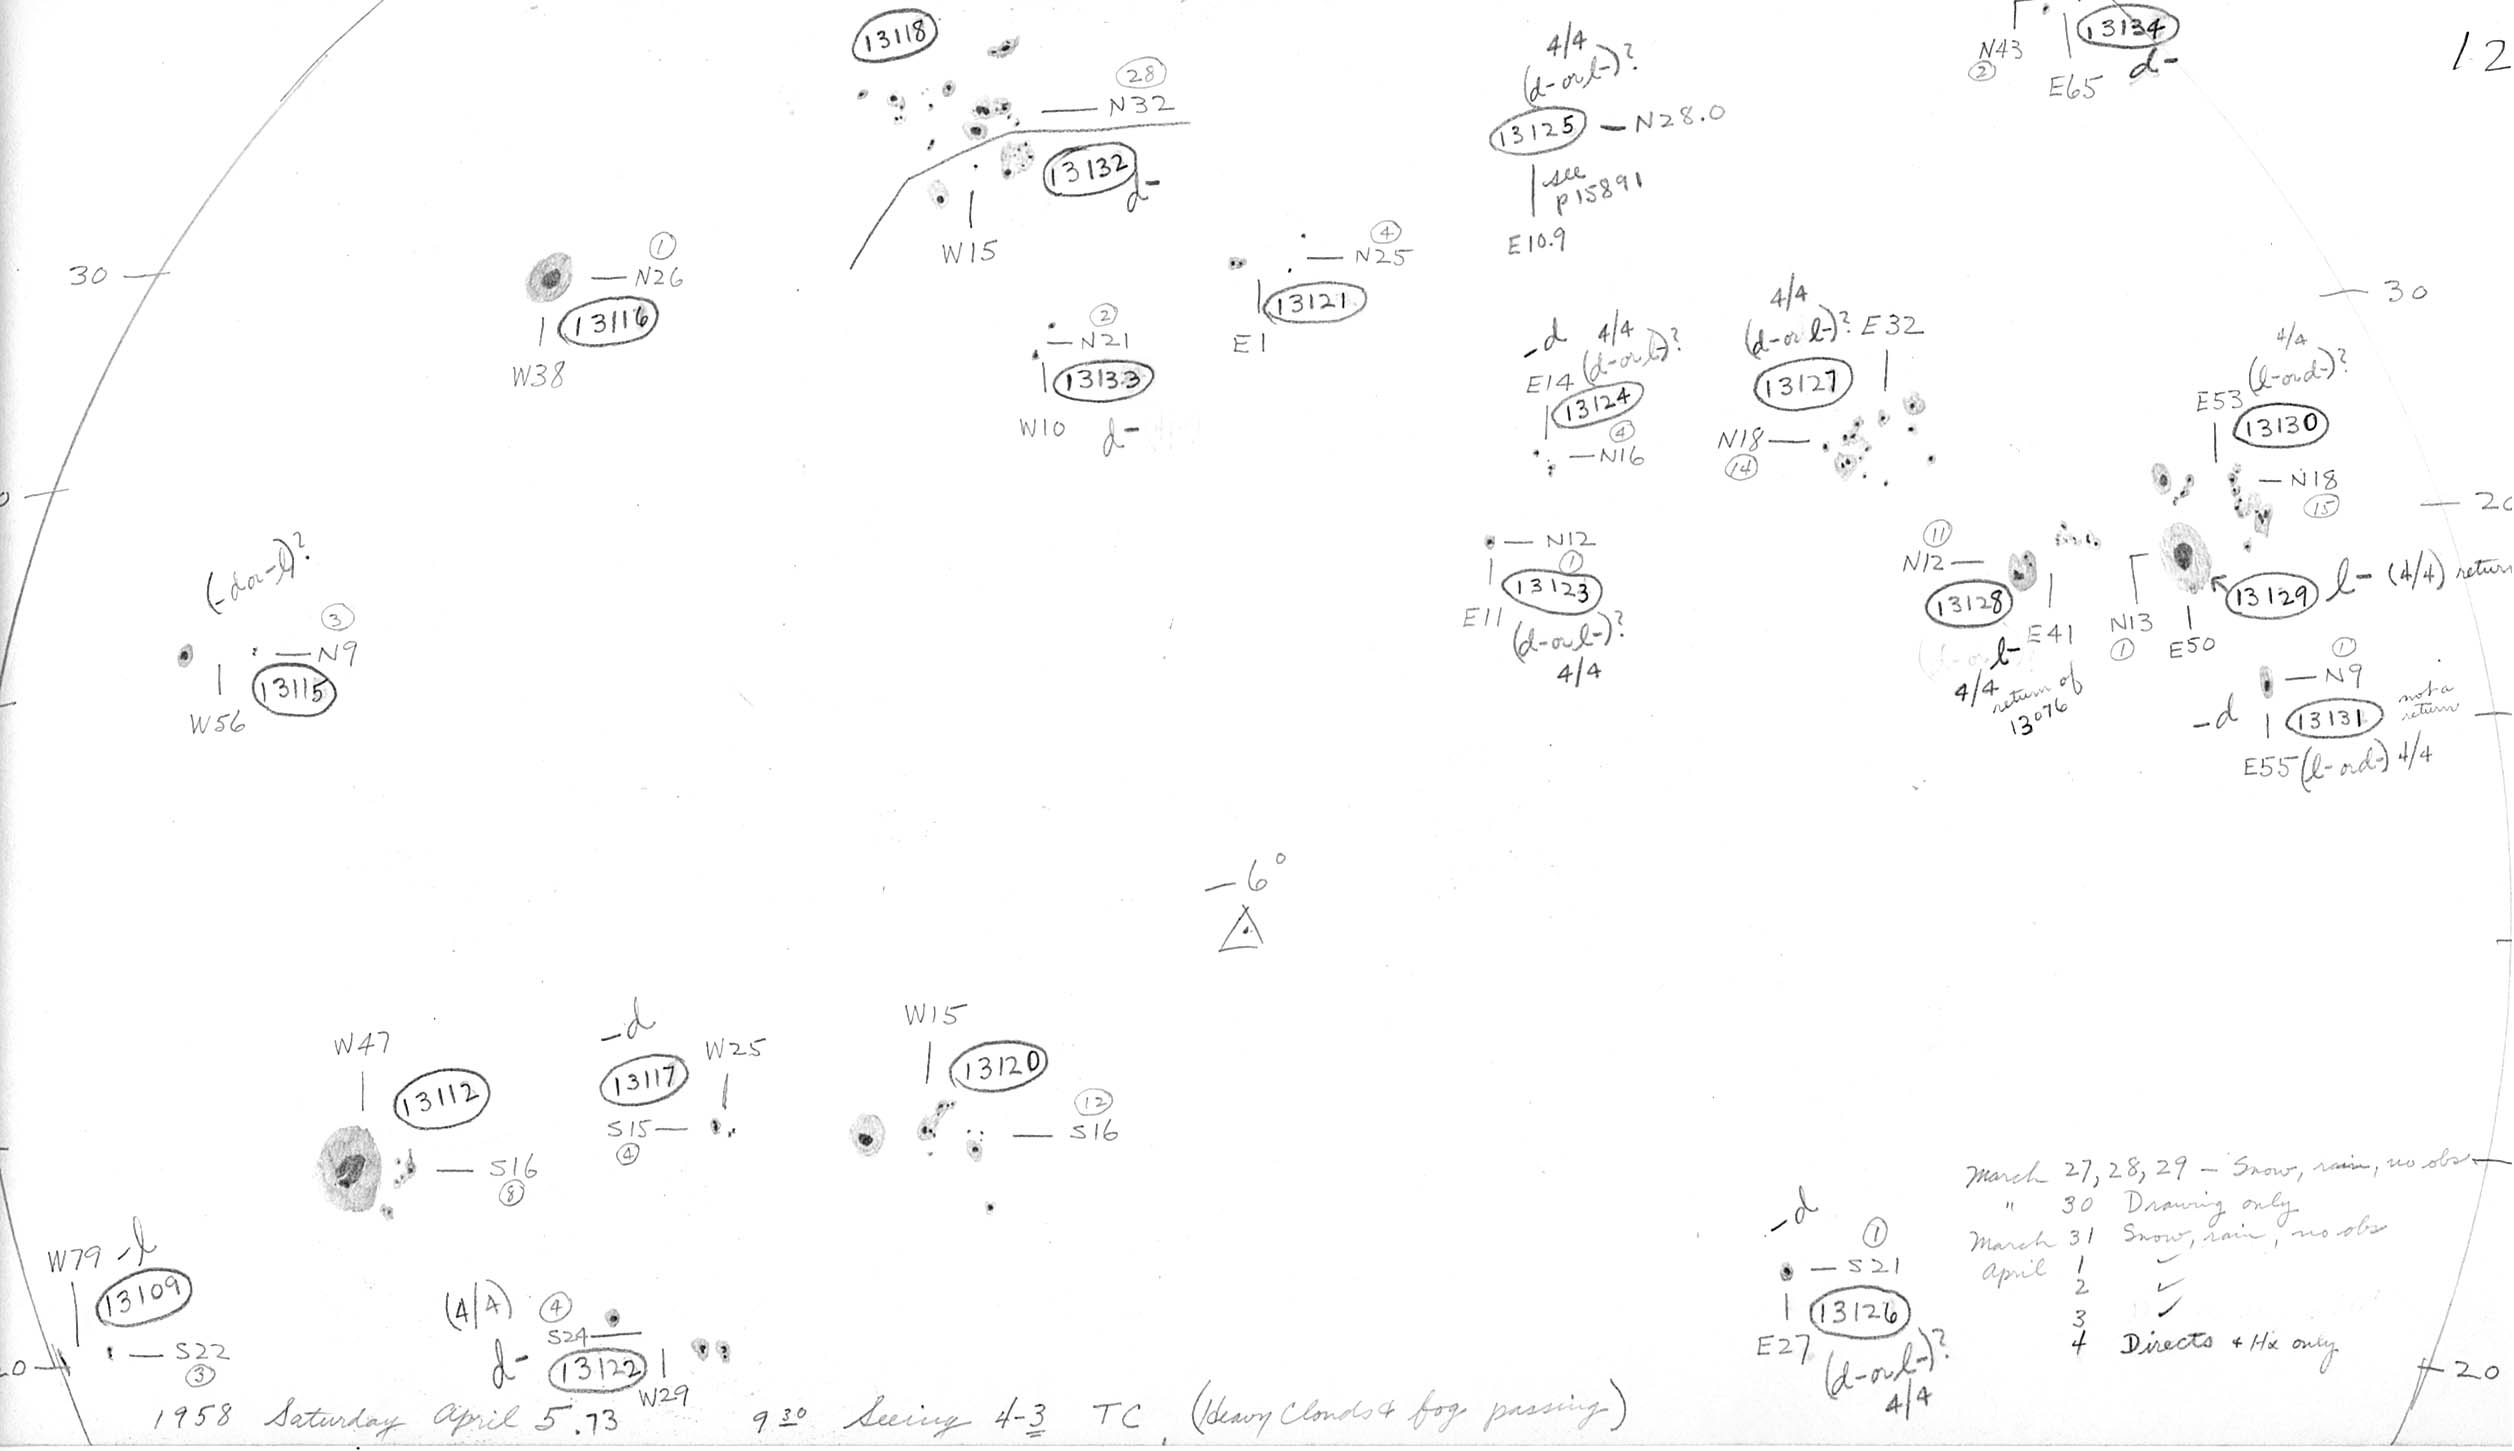 13118
28
N32
13132
d-
W15
4/4
(d- or l-)?
13125 — N28.0
see
p15891
E10.9
N43
2
13134
d-
E65
12
30
1
N26
13116
W38
4
N25
13121
E1
2
N21
13133
W10
d-
-d 4/4
(d- or l-)?
E14
13124
4
N16
4/4
(d- or l-)?
E32
13127
N18
14
30
4/4
(l- or d-)?
E53
13130
N18
15
20
0
N12
1
13123
E11
(d- or l-)?
4/4
11
N12
13128
E41
l-
4/4
return of
13076
N13
1
E50
13129
l- (4/4) return
(-d or -l)?
3
N9
13115
W56
1
N9
-d
13131
not a
return
E55 (l- or d-) 4/4
-6°
W47
13112
S16
8
-d
13117
W25
S15
4
W15
13120
12
S16
W79 -l
13109
S22
3
20
(4/4)
4
S24
d-
13122
W29
-d
1
S21
13126
E27
(d- or l-)?
4/4
March 27, 28, 29 — Snow, rain, no obs
" 30 Drawing only
March 31 Snow, rain, no obs
April 1 ✓
2 ✓
3 ✓
4 Directs & Hα only
20
1958 Saturday April 5.73 9 30 Seeing 4-3 TC (Heavy Clouds & fog passing)